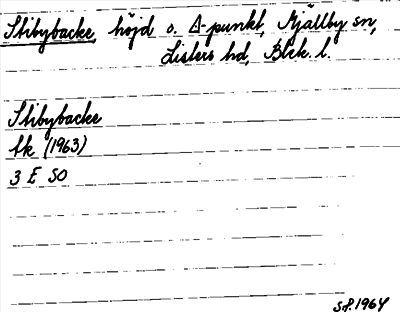 Stibybacke, höjd o. Δ-punkt, Mjällby sn,
Listers hd, Blek. l.
Stibybacke
Ek (1963)
3 E SO
S.P. 1964